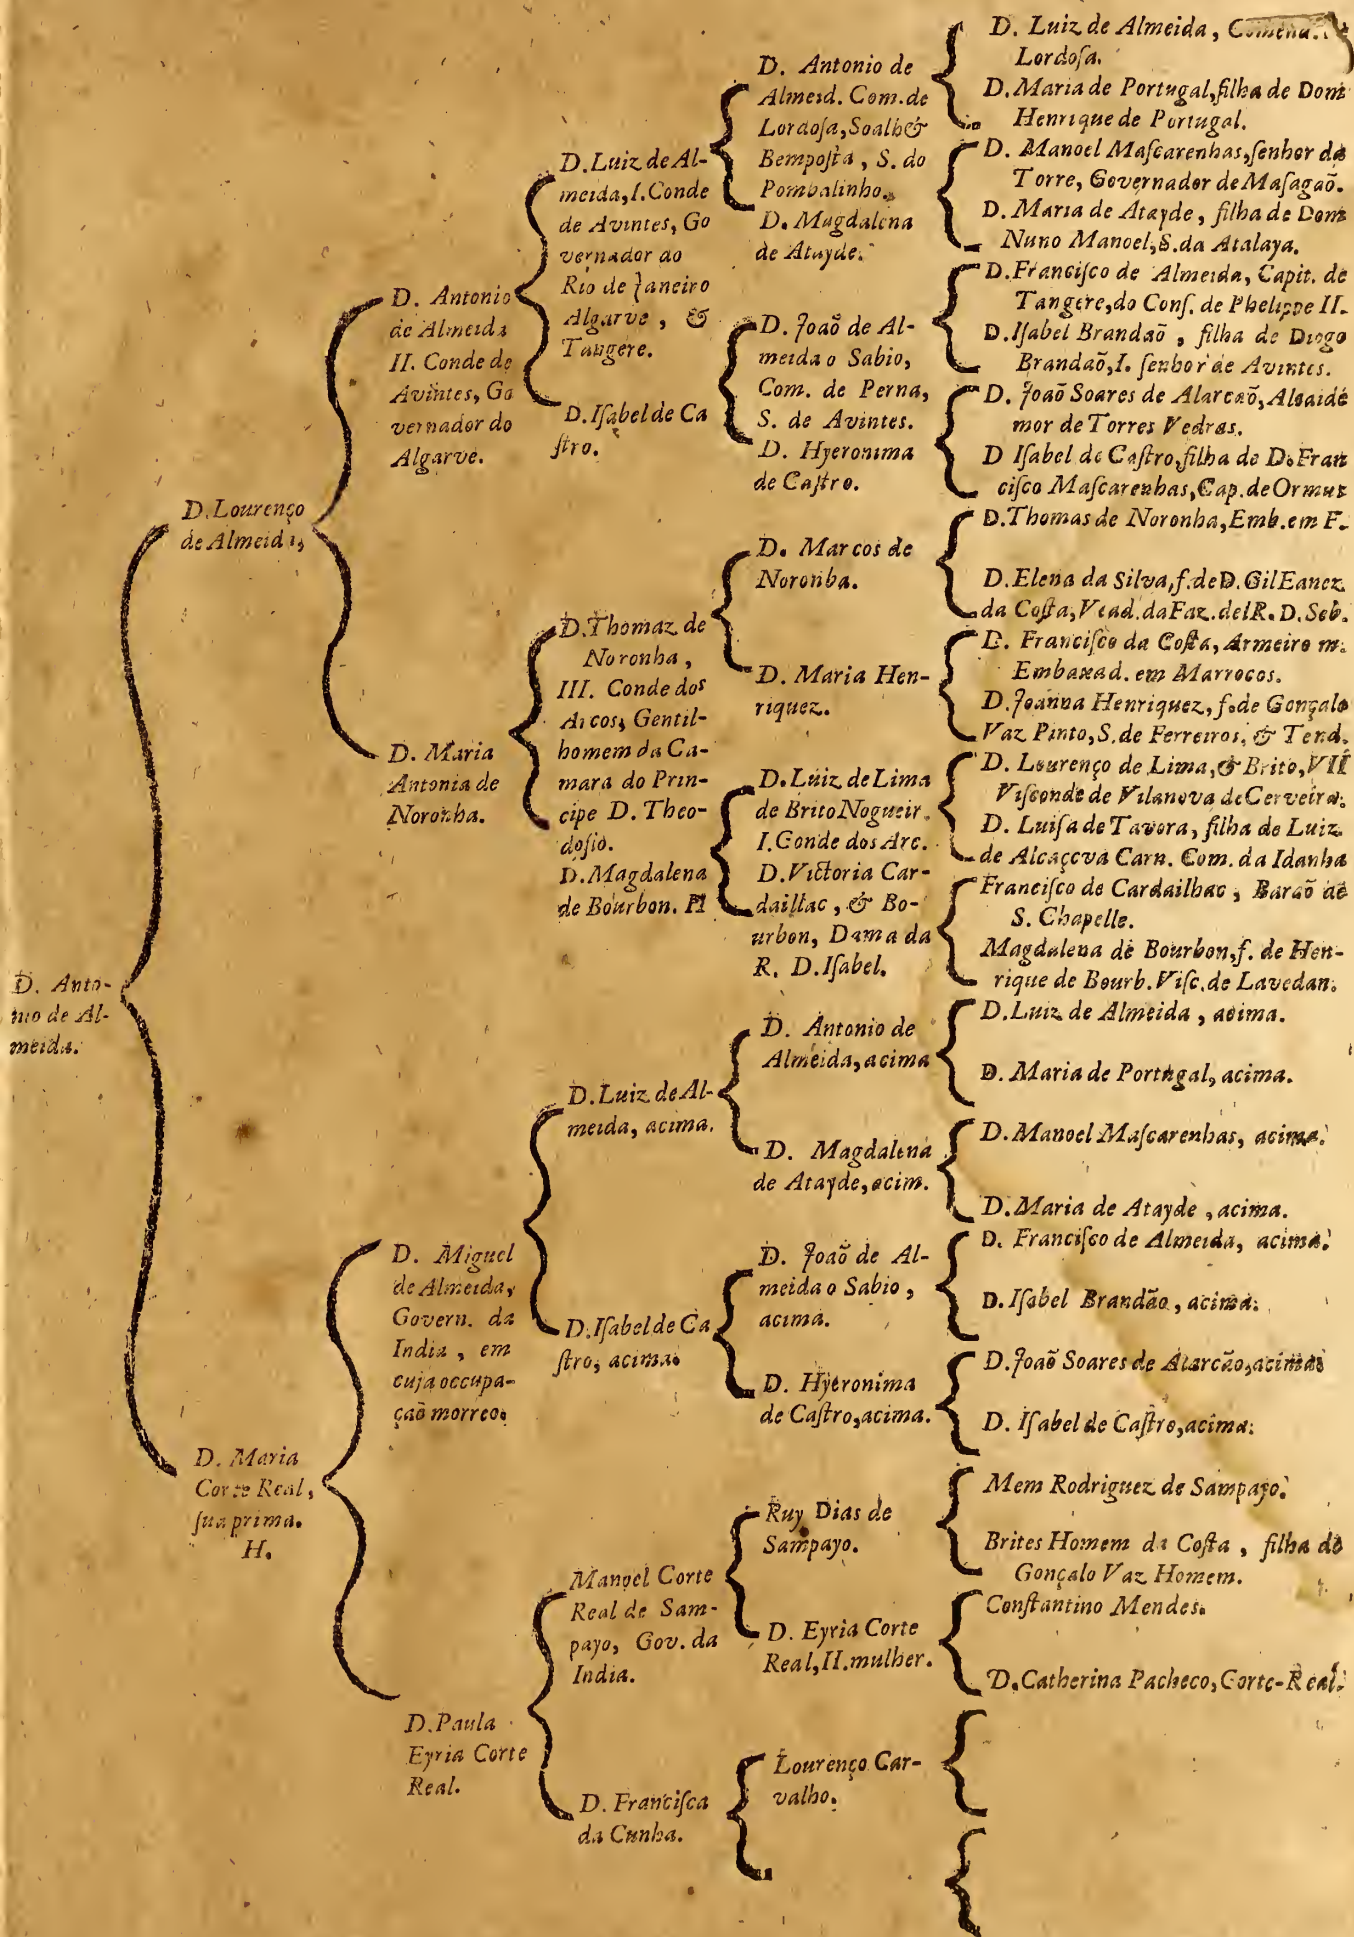 D. Anto-
nio de Al-
meida.
D. Lourenço
de Almeida,
D. Maria
Corte Real,
ſua prima.
H.
D. Antonio
de Almeida
II. Conde de
Avintes, Go
vernador do
Algarve.
D. Maria
Antonia de
Noronha.
D. Miguel
de Almeida,
Govern. da
India, em
cuja occupa-
çaõ morreo.
D. Paula
Eyria Corte
Real.
D. Luiz de Al-
meida, I. Conde
de Avintes, Go
vernador do
Rio de Janeiro
Algarve, &
Tangere.
D. Iſabel de Ca
ſtro.
D. Thomaz de
Noronha,
III. Conde dos
Arcos, Gentil-
homem da Ca-
mara do Prin-
cipe D. Theo-
doſio.
D. Magdalena
de Bourbon. H
D. Luiz de Al-
meida, acima.
D. Iſabel de Ca
ſtro, acima.
Manoel Corte
Real de Sam-
payo, Gov. da
India.
D. Franciſca
da Cunha.
D. Antonio de
Almeid. Com. de
Lordoſa, Soalh &
Bempoſta, S. do
Pombalinho.
D. Magdalena
de Atayde.
D. Joaõ de Al-
meida o Sabio,
Com. de Perna,
S. de Avintes.
D. Hyeronima
de Caſtro.
D. Marcos de
Noronha.
D. Maria Hen-
riquez.
D. Luiz de Lima
de Brito Nogueir.
I. Conde dos Arc.
D. Victoria Car-
daillac, & Bo-
urbon, Dama da
R. D. Iſabel.
D. Antonio de
Almeida, acima
D. Magdalena
de Atayde, acim.
D. Joaõ de Al-
meida o Sabio,
acima.
D. Hyeronima
de Caſtro, acima.
Ruy Dias de
Sampayo.
D. Eyria Corte
Real, II. mulher.
Lourenço Car-
valho.
D. Luiz de Almeida,
Lordoſa.
D. Maria de Portugal, filha de Dom
Henrique de Portugal.
D. Manoel Maſcarenhas, ſenhor da
Torre, Governador de Maſagaõ.
D. Maria de Atayde, filha de Dom
Nuno Manoel, S. da Atalaya.
D. Franciſco de Almeida, Capit. de
Tangere, do Conſ. de Phelippe II.
D. Iſabel Brandaõ, filha de Diogo
Brandaõ, I. ſenhor de Avintes.
D. Joaõ Soares de Alarcaõ, Alcaide
mor de Torres Vedras.
D Iſabel de Caſtro, filha de D. Fran
ciſco Maſcarenhas, Cap. de Ormus
D. Thomas de Noronha, Emb. em F.
D. Elena da Silva, f. de D. Gil Eanez
da Coſta, Vead. da Faz. delR. D. Seb.
D. Franciſco da Coſta, Armeiro m.
Embaxad. em Marrocos.
D. Joanna Henriquez, f. de Gonçalo
Vaz Pinto, S. de Ferreiros, & Tend.
D. Lourenço de Lima, & Brito, VII
Viſconde de Vilanova de Cerveira.
D. Luiſa de Tavora, filha de Luiz
de Alcaçova Carn. Com. da Idanha
Franciſco de Cardailhac, Baraõ de
S. Chapelle.
Magdalena de Bourbon, f. de Hen-
rique de Bourb. Viſc. de Lavedan.
D. Luiz de Almeida, acima.
D. Maria de Portugal, acima.
D. Manoel Maſcarenhas, acima.
D. Maria de Atayde, acima.
D. Franciſco de Almeida, acima.
D. Iſabel Brandão, acima.
D. Joaõ Soares de Alarcão, acima.
D. Iſabel de Caſtro, acima.
Mem Rodriguez de Sampayo.
Brites Homem da Coſta, filha de
Gonçalo Vaz Homem.
Conſtantino Mendes.
D. Catherina Pacheco, Corte-Real.